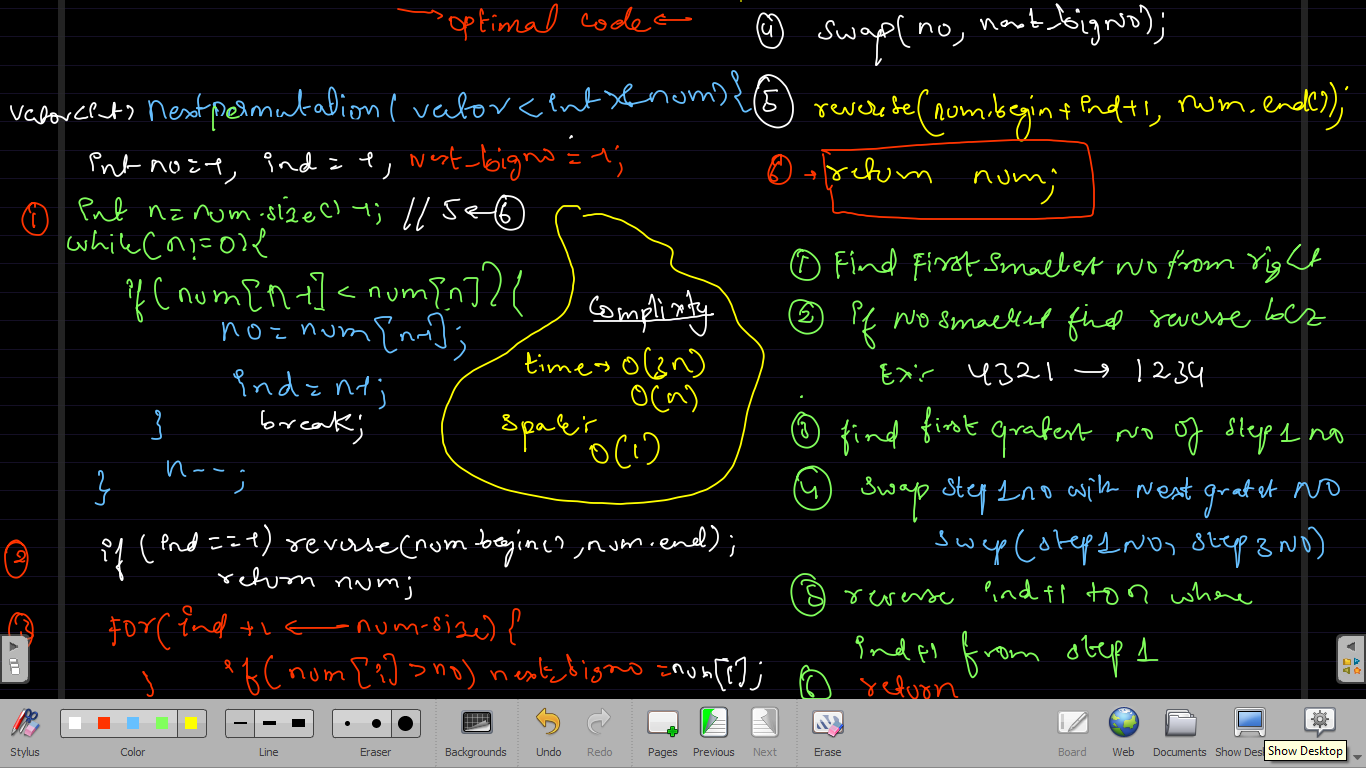 → optimal code ←
vector<int> Nextpermutation( vector<int>& num) {
int no=-1, ind = -1, next-bigno = -1;
① int n=num.size() -1; // 5 ← ⑥
while(n!=0){
if(num[n-1] < num[n]) {
no = num[n-1];
ind = n-1;
break;
}
n--;
}
② if (ind == -1) reverse(num.begin(), num.end);
return num;
③ for(ind +1 ← num.size) {
if(num[i] > no) next-bigno = num[i];
}
Complixty
time → O(3n)
O(n)
space:-
O(1)
④ swap(no, next-bigno);
⑤ reverse(num.begin + ind+1, num.end());
⑥ → return num;
① Find First smallest no from right
② if no smallest find reverse
Ex:- 4321 → 1234
③ find first gratest no of step1 no
④ swap step 1 no with next gratest NO
swap(step1 NO, step3 NO)
⑤ reverse ind+1 to n where
ind+1 from step 1
⑥ return
Stylus
Color
Line
Eraser
Backgrounds
Undo
Redo
Pages
Previous
Next
Erase
Board
Web
Documents
Show Des
Show Desktop